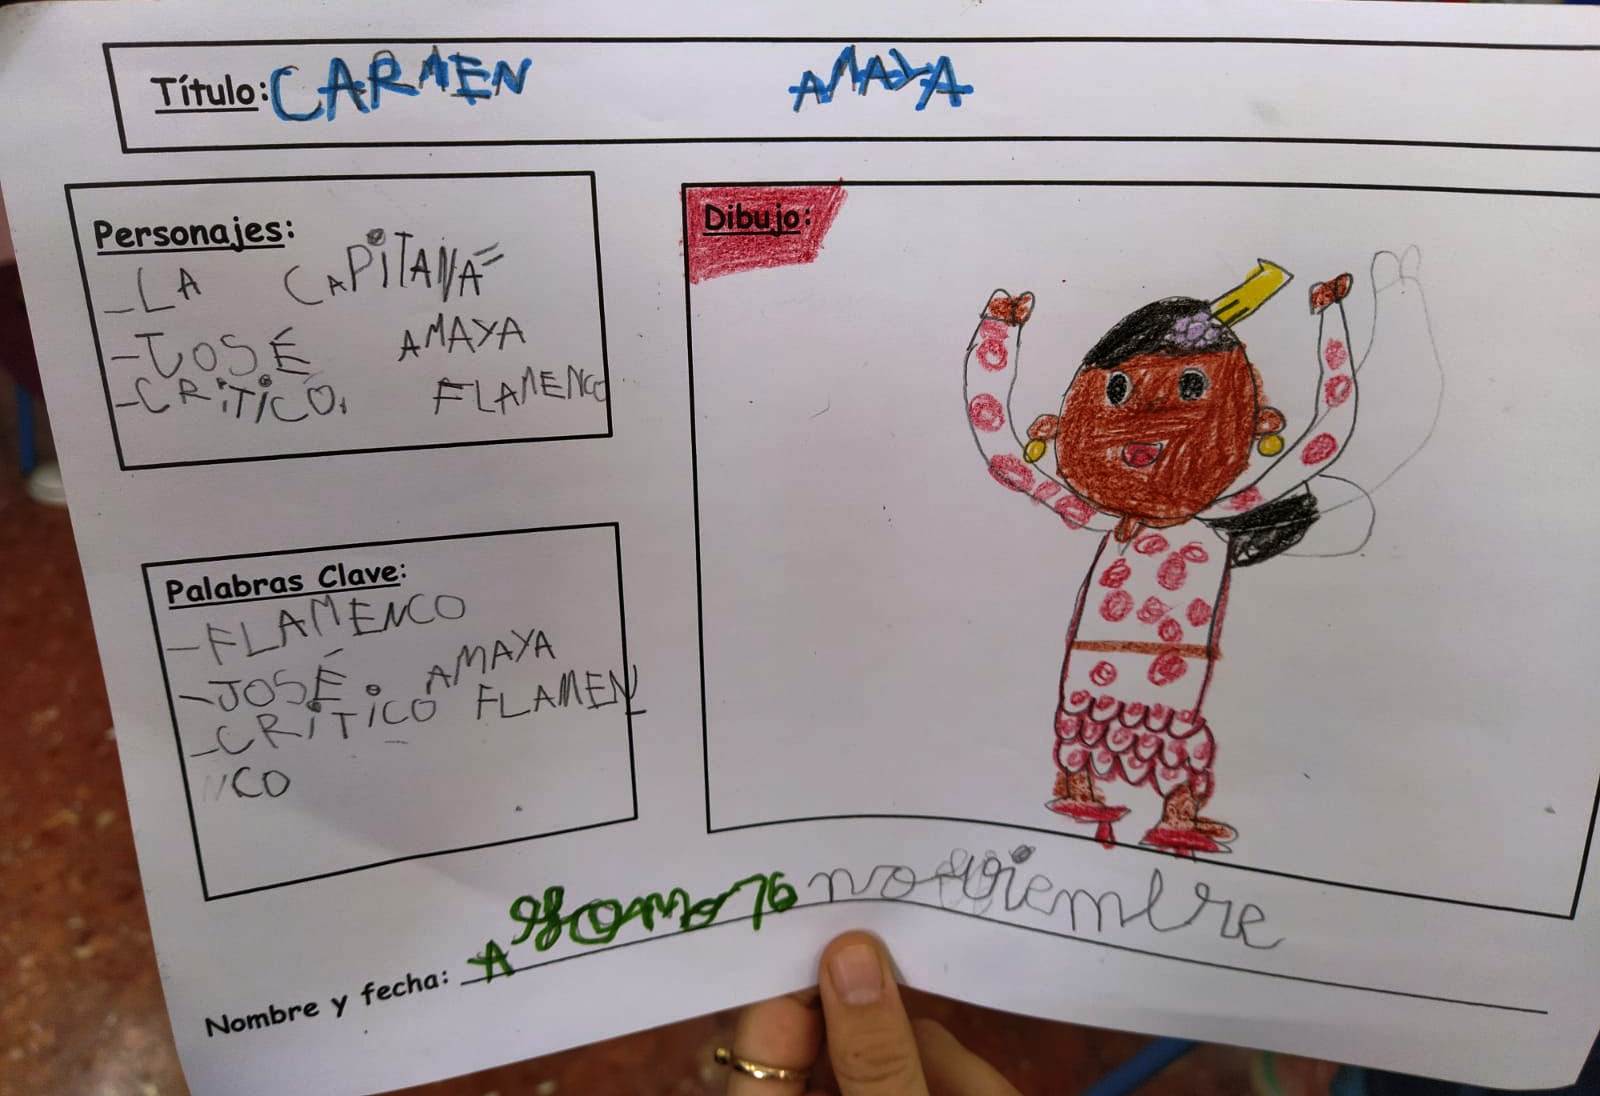 Título: CARMEN AMAYA
Personajes:
-LA CAPITANA
-JOSÉ AMAYA
-CRITICO, FLAMENCO
Palabras Clave:
-FLAMENCO
-JOSÉ. AMAYA
-CRITICO FLAMEN
NCO
Dibujo:
Nombre y fecha: noviembre